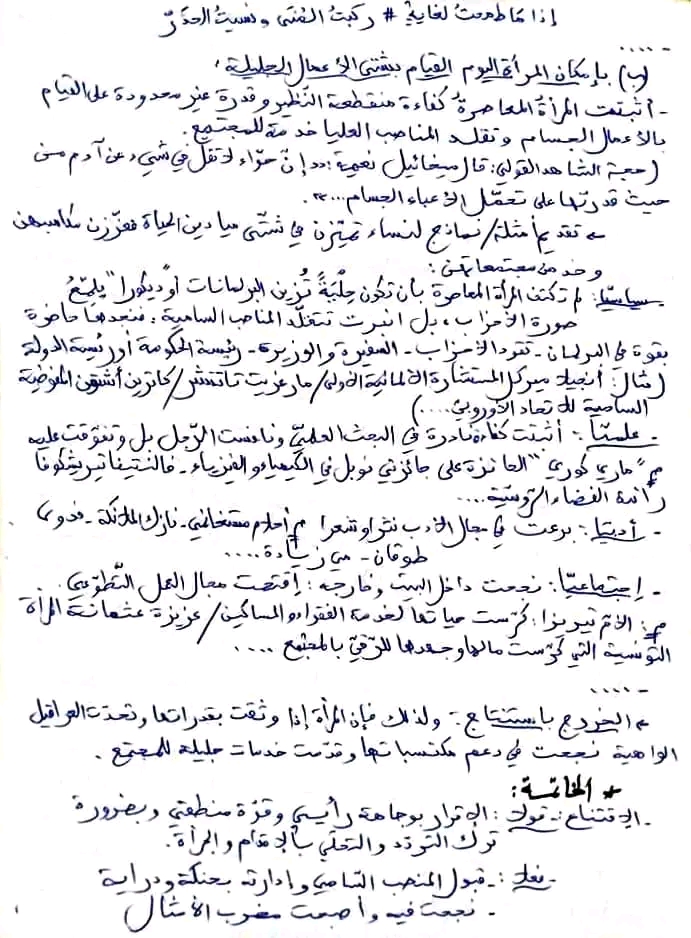 إذا ما طمحتُ لغاية # ركبتُ المُنَى ونسيتُ الحذرْ
....
(ب) بإمكان المرأة اليوم القيام بشتى الأعمال الجليلة:
- أثبتت المرأةُ المعاصرة كفاءة منقطعة النّظير وقدرة غير محدودة على القيام
بالأعمال الجسام وتقلّد المناصب العليا خدمة للمجتمع.
(حجة الشاهد القولي: قال ميخائيل نعيمة: "إنّ حوّاء لا تقلّ في شيء عن آدم من
حيث قدرتها على تحمّل الأعباء الجسام...".
* تقديم أمثلة/نماذج لنساء تميّزن في شتّى ميادين الحياة فعزّزن مكاسبهن
وخدمن مجتمعاتهن:
- سياسيّا: لم تكتف المرأة المعاصرة بأن تكون حِلْيَةً تُزين البرلمانات أو "ديكورا" يلمّعُ
صورة الأحزاب، بل انبرت تتقلّد المناصب السامية: فنجدها حاضرة
بقوة في البرلمان - تقود الأحزاب - السفيرة والوزيرة - رئيسة الحكومة أو رئيسة الدولة
(مثال: أنجيلا ميركل المستشارة الألمانية الأولى/مارغريت تاتشر/كاترين أشتون المفوضية
السامية للاتحاد الأوروبي....)
- علميّا: أثبتت كفاءة نادرة في البحث العلميّ ونافست الرّجل بل وتفوّقت عليه
م "ماري كوري" الحائزة على جائزتي نوبل في الكيمياء والفيزياء - فالنتينا تيريشكوفا
رائدة الفضاء الروسيّة....
- أدبيّا: برعت في مجال الأدب نثرا وشعرا م أحلام مستغانمي - نازك الملائكة - فدوى
طوقان - مي زيادة.....
- إجتماعيّا: نجحت داخل البيت وخارجه: إقتحمت مجال العمل التّطوّعي
م: الأمّ تيريزا: كرّست حياتها لخدمة الفقراء والمساكين/عزيزة عثمانة المرأة
التّونسية التي كرّست مالها وجهدها للرّقيّ بالمجتمع....
....
* الخروج باستنتاج: ولذلك فإن المرأة إذا وثقت بقدراتها وتحدّت العراقيل
الواهية نجحت في دعم مكتسباتها وقدّمت خدمات جليلة للمجتمع.
* الخاتمة:
- الاقتناع: - قولا: الإقرار بوجاهة رأيي وقوّة منطقي وبضرورة
ترك التردّد والتحلّي بالإقدام والجرأة.
- فعلا: - قبول المنصب السّامي وإدارته بحنكة ودراية
- نجحت فيه وأصبحت مضرب الأمثال